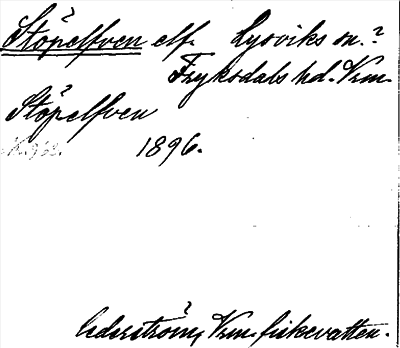 Stöpelfven elf. Lysviks sn.?
Fryksdals hd. Vrm.
Stöpelfven
1896.
Cederström, Vrm. fiskevatten.